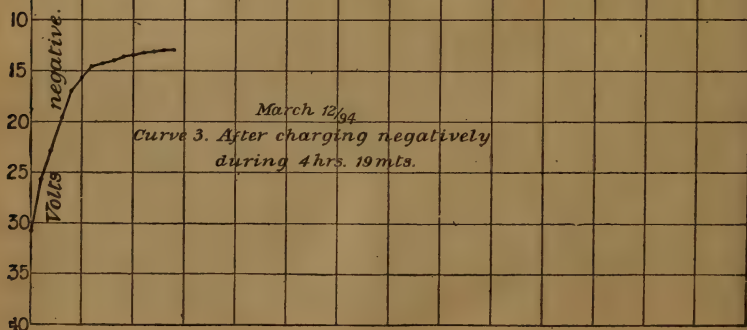 10
15
20
25
30
35
40
Volts negative.
March 12/94
Curve 3. After charging negatively
during 4 hrs. 19 mts.